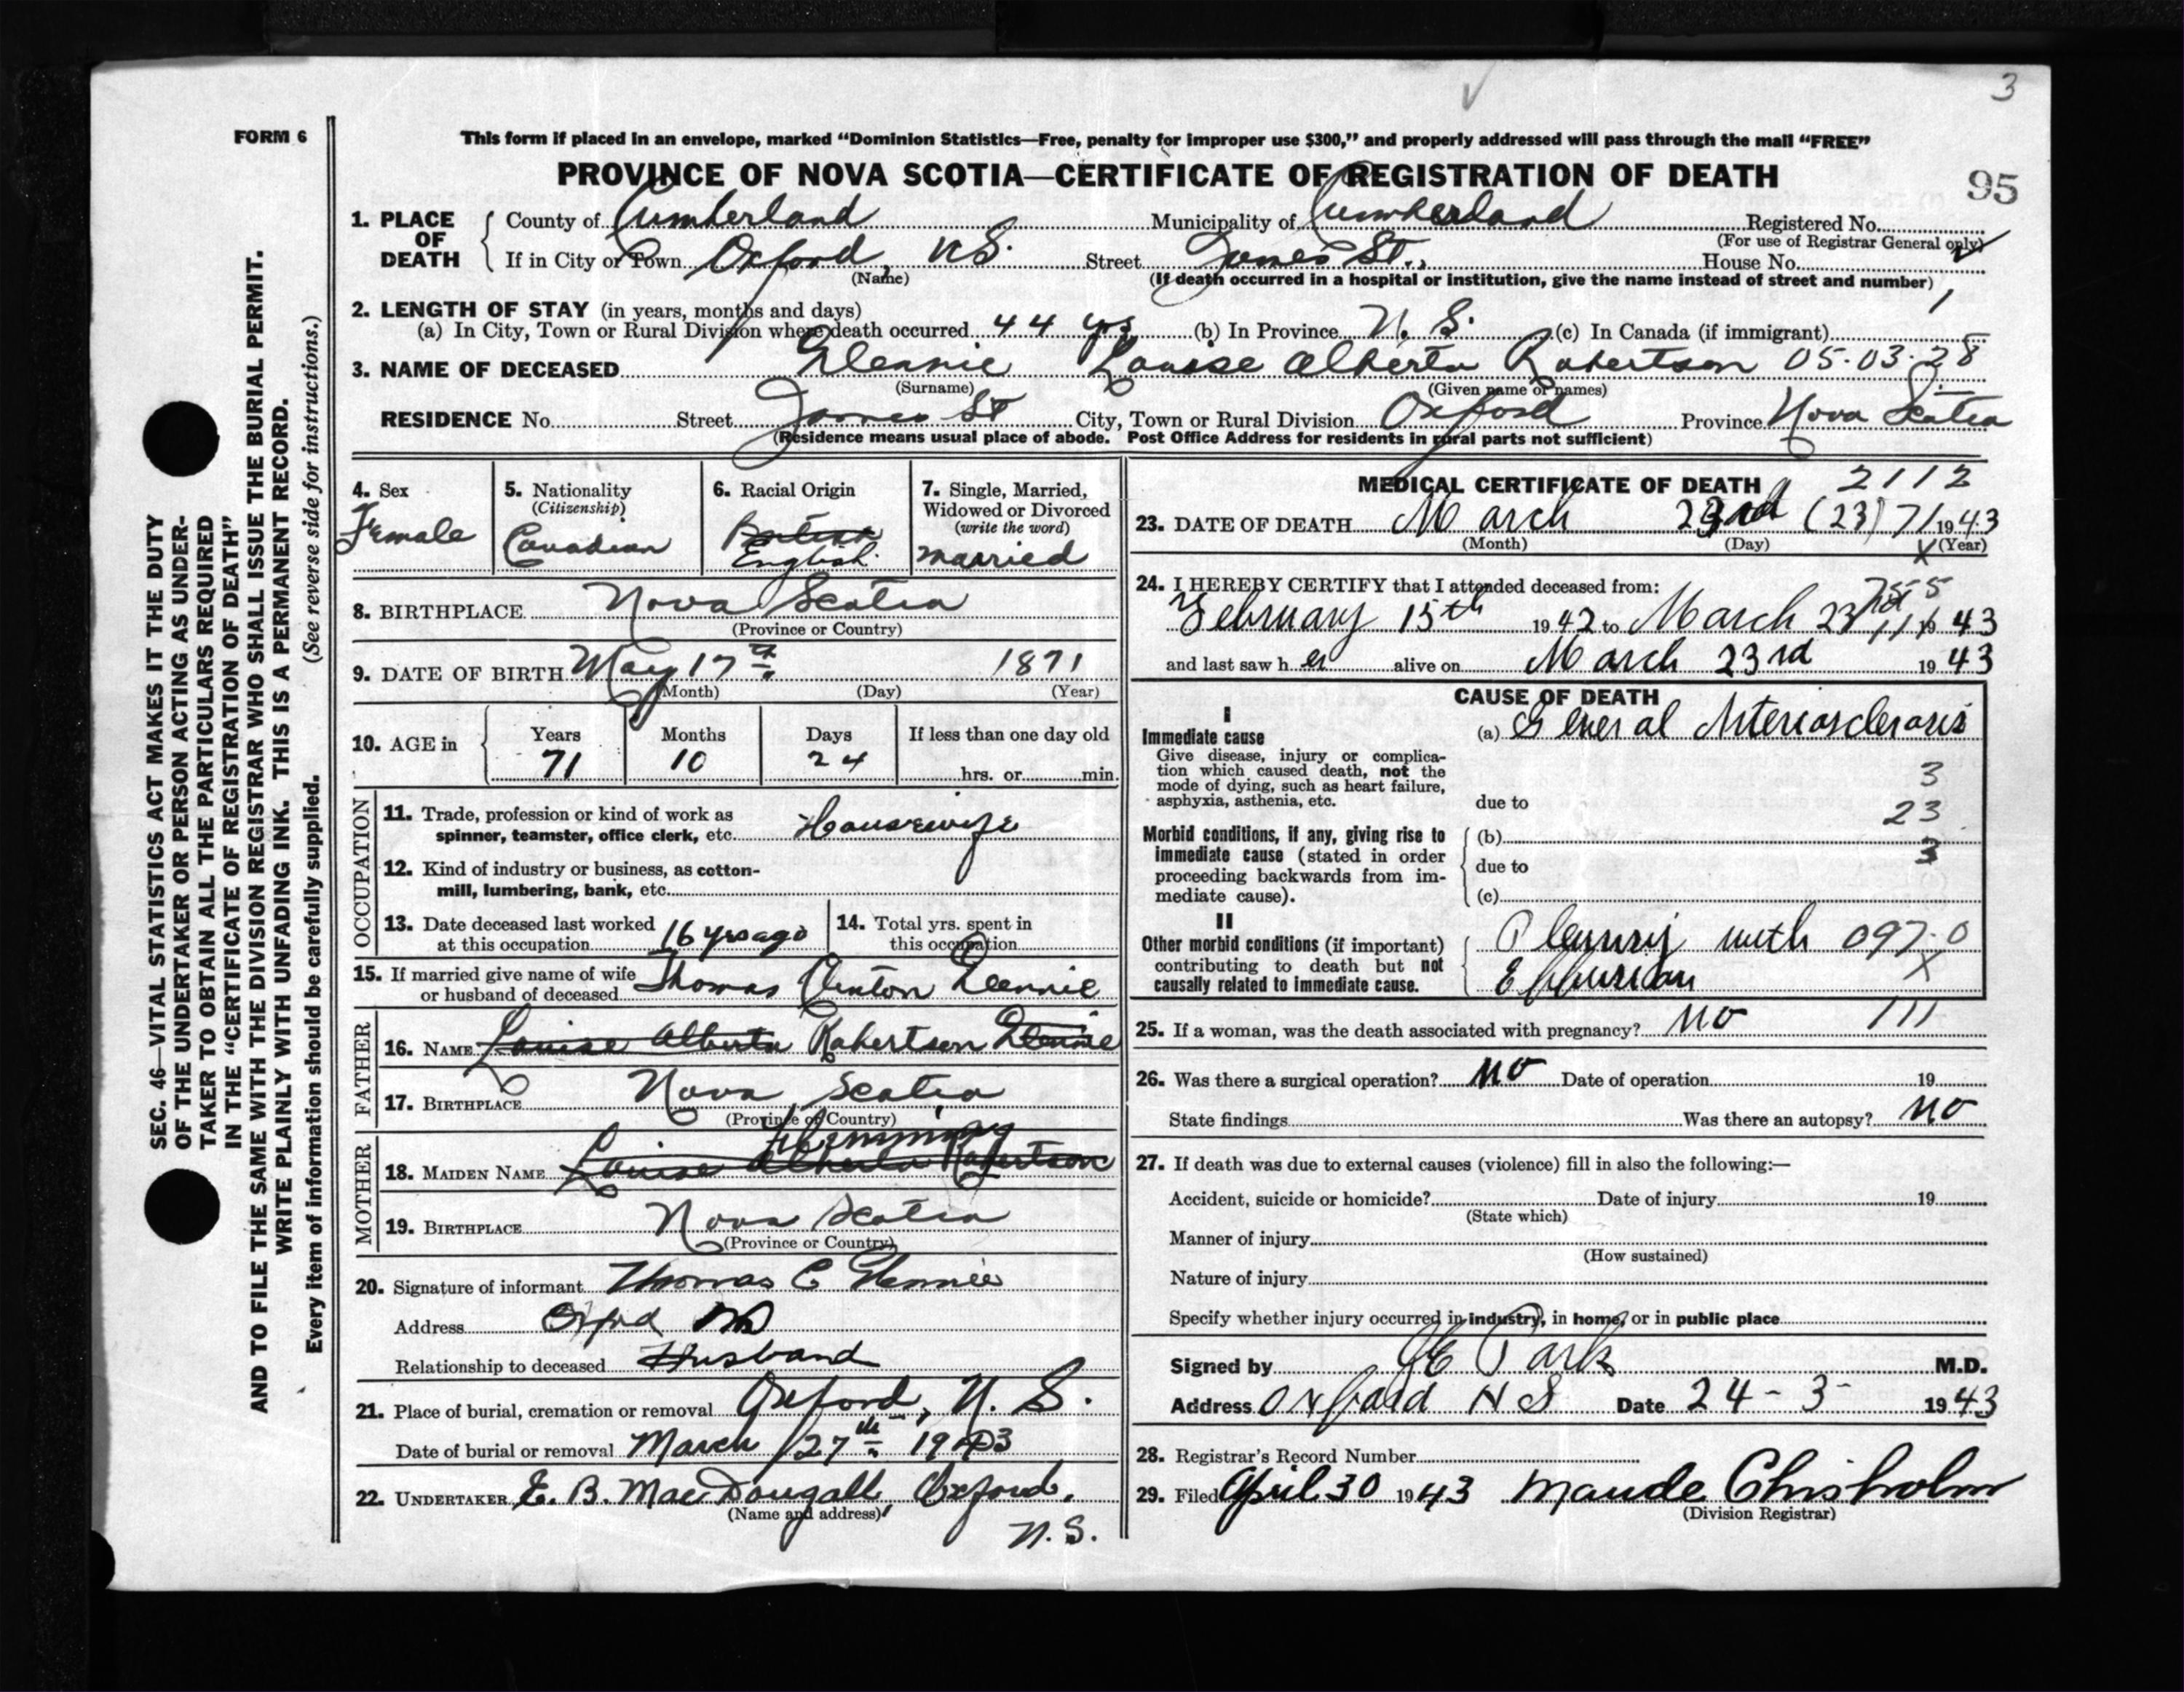 3
FORM 6
This form if placed in an envelope, marked "Dominion Statistics—Free, penalty for improper use $300," and properly addressed will pass through the mail "FREE"
PROVINCE OF NOVA SCOTIA—CERTIFICATE OF REGISTRATION OF DEATH
95
1. PLACE OF DEATH County of Cumberland Municipality of Cumberland Registered No.
(For use of Registrar General only)
If in City or Town Oxford, N S. Street James St. House No.
(Name) (If death occurred in a hospital or institution, give the name instead of street and number)
2. LENGTH OF STAY (in years, months and days)
(a) In City, Town or Rural Division where death occurred 44 yrs (b) In Province N. S. (c) In Canada (if immigrant)
3. NAME OF DECEASED Glennie Louise Alberta Robertson 05-03-28
(Surname) (Given name or names)
RESIDENCE No. Street James St City, Town or Rural Division Oxford Province Nova Scotia
(Residence means usual place of abode. Post Office Address for residents in rural parts not sufficient)
4. Sex
Female
5. Nationality
(Citizenship)
Canadian
6. Racial Origin
British
English
7. Single, Married,
Widowed or Divorced
(write the word)
married
8. BIRTHPLACE Nova Scotia
(Province or Country)
9. DATE OF BIRTH May 17th 1871
(Month) (Day) (Year)
10. AGE in Years Months Days If less than one day old
71 10 24 hrs. or min.
OCCUPATION
11. Trade, profession or kind of work as
spinner, teamster, office clerk, etc. Housewife
12. Kind of industry or business, as cotton-
mill, lumbering, bank, etc.
13. Date deceased last worked
at this occupation 16 yrs ago
14. Total yrs. spent in
this occupation
15. If married give name of wife
or husband of deceased Thomas Clinton Glennie
FATHER
16. NAME Louise Alberta Robertson Glennie
17. BIRTHPLACE Nova Scotia
(Province or Country)
MOTHER
Flemming
18. MAIDEN NAME Louise Alberta Robertson
19. BIRTHPLACE Nova Scotia
(Province or Country)
20. Signature of informant Thomas C Glennie
Address Oxford NS
Relationship to deceased Husband
21. Place of burial, cremation or removal Oxford, N. S.
Date of burial or removal March 27th 1943
22. UNDERTAKER E. B. MacDougall, Oxford,
(Name and address)
N. S.
MEDICAL CERTIFICATE OF DEATH 2112
23. DATE OF DEATH March 23rd (23) 71 1943
(Month) (Day) (Year)
24. I HEREBY CERTIFY that I attended deceased from:
February 15th 1942 to March 23rd 1943
and last saw her alive on March 23rd 1943
CAUSE OF DEATH
I
Immediate cause
Give disease, injury or complica-
tion which caused death, not the
mode of dying, such as heart failure,
asphyxia, asthenia, etc.
(a) General Arteriosclerosis
3
due to
23
Morbid conditions, if any, giving rise to
immediate cause (stated in order
proceeding backwards from im-
mediate cause).
(b)
3
due to
(c)
II
Other morbid conditions (if important)
contributing to death but not
causally related to immediate cause.
Pleurisy with 097.0
Effusion X
25. If a woman, was the death associated with pregnancy? No 111
26. Was there a surgical operation? No Date of operation 19
State findings Was there an autopsy? No
27. If death was due to external causes (violence) fill in also the following:—
Accident, suicide or homicide? Date of injury 19
(State which)
Manner of injury
(How sustained)
Nature of injury
Specify whether injury occurred in industry, in home, or in public place
Signed by Park M.D.
Address Oxford N S Date 24-3-1943
28. Registrar's Record Number
29. Filed April 30 1943 Maude Chisholm
(Division Registrar)
SEC. 46—VITAL STATISTICS ACT MAKES IT THE DUTY
OF THE UNDERTAKER OR PERSON ACTING AS UNDER-
TAKER TO OBTAIN ALL THE PARTICULARS REQUIRED
IN THE "CERTIFICATE OF REGISTRATION OF DEATH"
AND TO FILE THE SAME WITH THE DIVISION REGISTRAR WHO SHALL ISSUE THE BURIAL PERMIT.
WRITE PLAINLY WITH UNFADING INK. THIS IS A PERMANENT RECORD.
Every item of information should be carefully supplied. (See reverse side for instructions.)